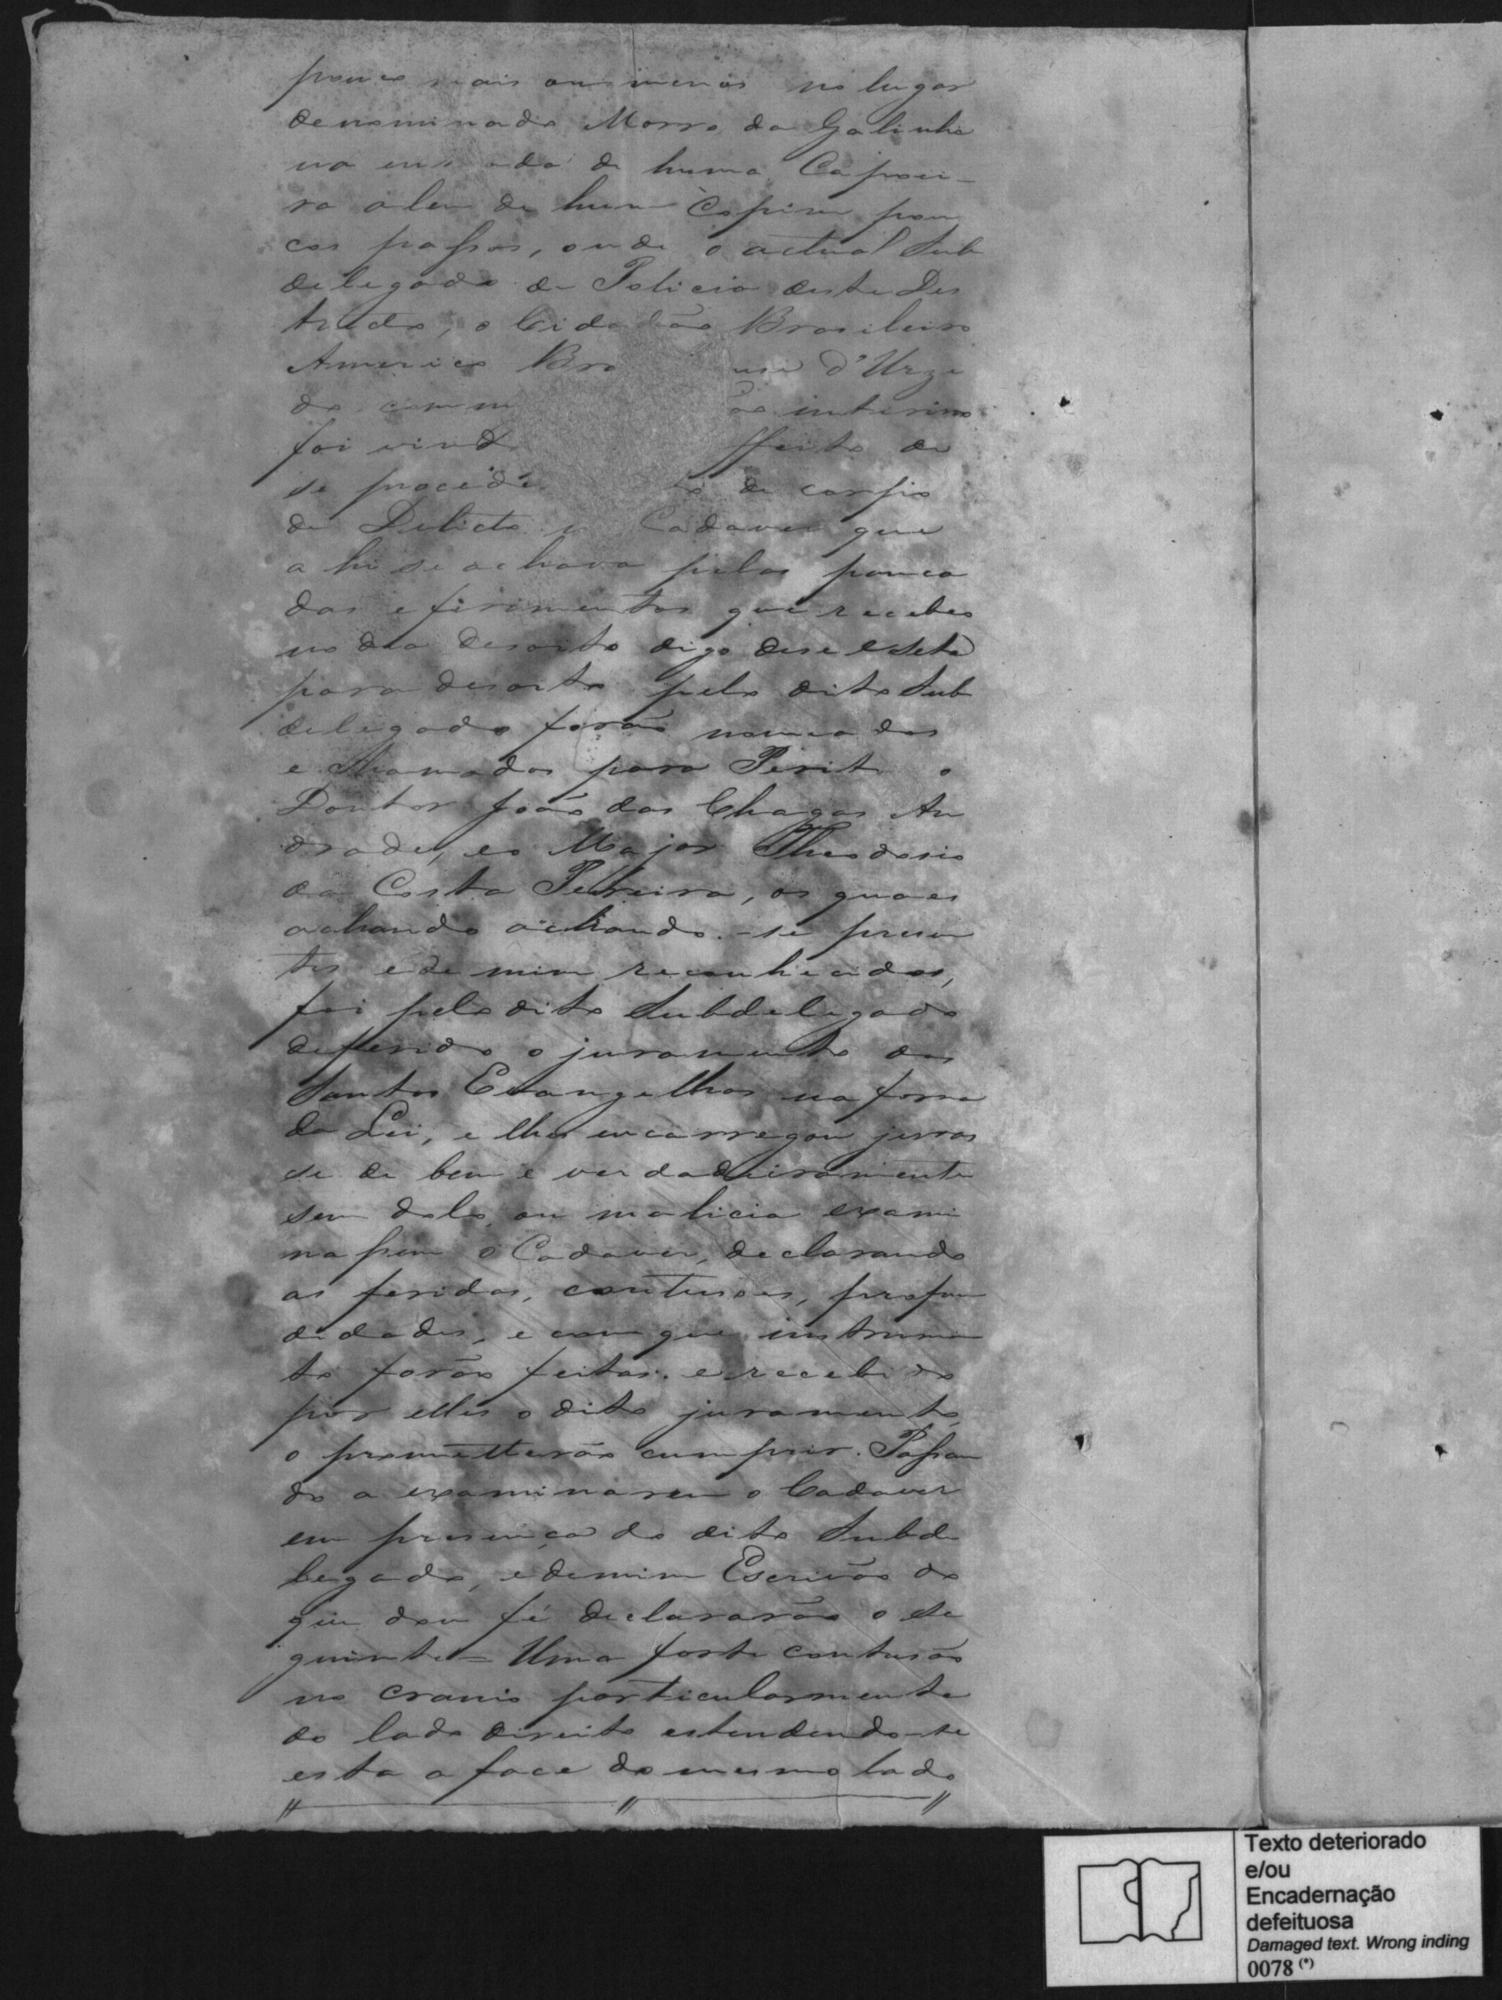 pouco mais ou menos no lugar
denominado Morro da Galinha
na de huma Capoei-
ra alem de hum Capim pou
cos passos, onde o actual Sub
delegado de Policia deste Des
tricto, o Cidadão Brasileiro
Americo Bro d'Urze
do comm interino
foi vind ffeito de
se proceder to de corpo
de Delicto n Cadaver que
ahi se achava pelas panca
das e ferimentos que recebeo
no dia desoito digo dese e sete
para desoito pelo dito Sub
delegado forão nomeados
e chamados para Perito o
Doutor João das Chagas An
drade, e o Major Theodosio
da Costa Pereira, os quaes
achando achando-se presen
tes e de mim reconhecidos,
foi pelo dito Subdelegado
deferido o juramento dos
Santos Evangelhos na forma
da Lei, e lhes encarregou juras
se de bem e verdadeiramente
sem dolo, ou malicia exami
nassem o Cadaver, declarando
as feridas, contusoes, profun
didades, e com que instrumen
to forão feitas. e recebido
por elles o dito juramento,
o prometterão cumprir. Passan
do a examinarem o Cadaver
em presença do dito Subde
legado, e de mim Escrivão do
que dou fé declararão o se
guinte = Uma forte contusão
no craneo particularmente
do lado direito estendendo-se
esta a face do mesmo lado
Texto deteriorado
e/ou
Encadernação
defeituosa
Damaged text. Wrong inding
0078 (*)